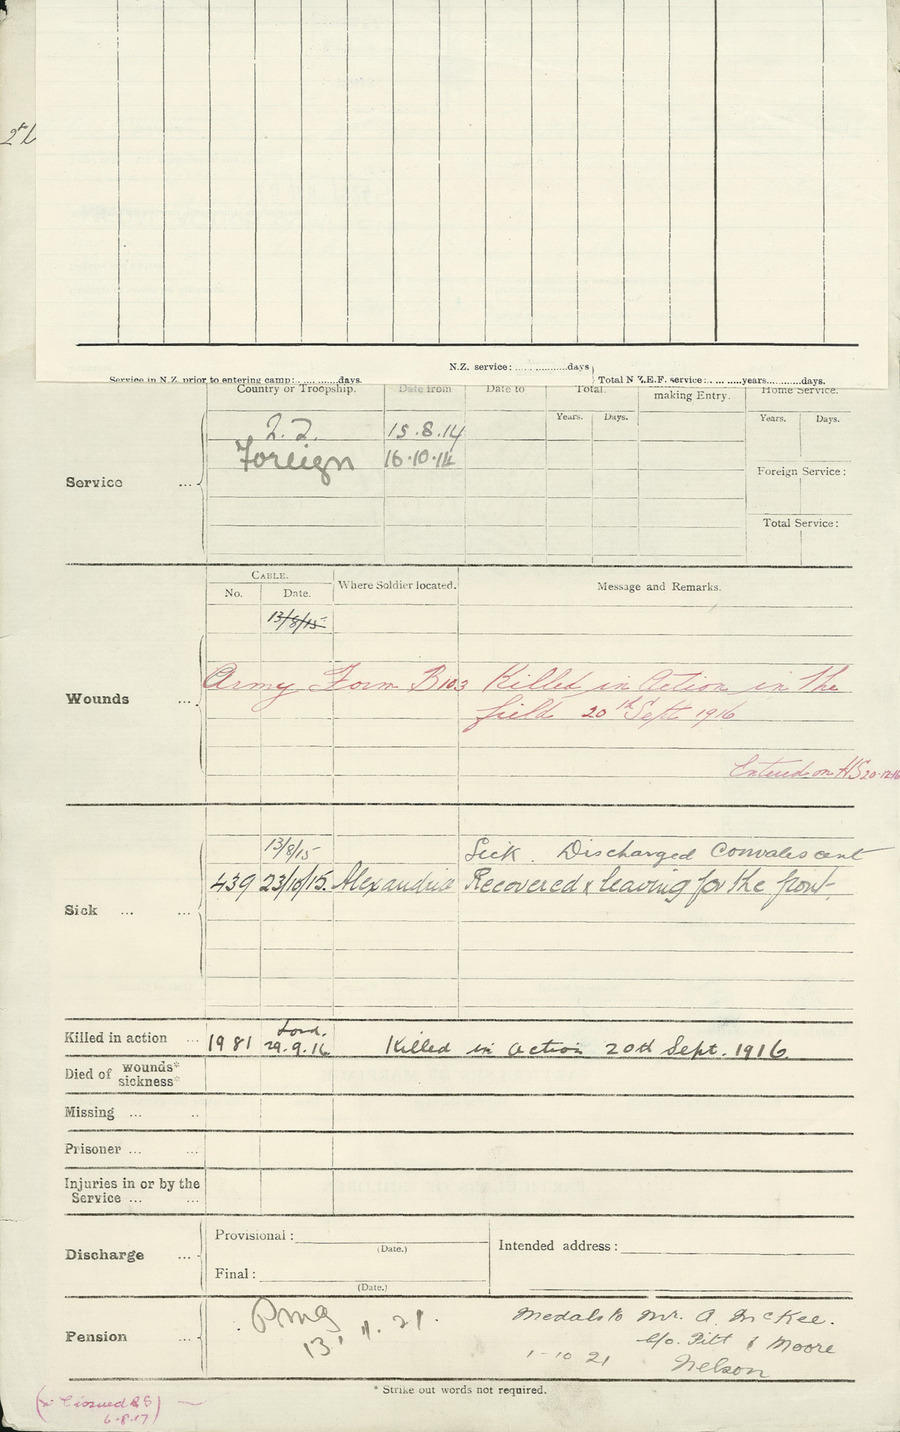 N.Z. service: ...............days
Service in N.Z. prior to entering camp: ............days. Total N.Z.E.F. service: ........years.........days.
Country or Troopship. Date from Date to Total. making Entry. Home Service.
Years. Days. Years. Days.
15.8.14
Foreign 16.10.14
Service ...
Foreign Service:
Total Service:
CABLE.
No. Date. Where Soldier located. Message and Remarks.
13/8/15
Wounds ...
Army Form B103 Killed in Action in the
field 20th Sept 1916
Entered on HS 20.12.16
13/8/15 Sick. Discharged Convalescent
439 23/10/15. Alexandria Recovered & leaving for the front.
Sick ... ...
Killed in action ... 1981 Lond. 29.9.16 Killed in action 20th Sept. 1916.
Died of wounds*
sickness*
Missing ... ..
Prisoner ... ...
Injuries in or by the
Service ... ...
Provisional:
(Date.)
Discharge ... Intended address:
Final:
(Date.)
Pension ...
13.11.21.
Medals to Mr. A. McKee.
c/o. Pitt & Moore
1-10 21 Nelson
* Strike out words not required.
issued
6.8.17